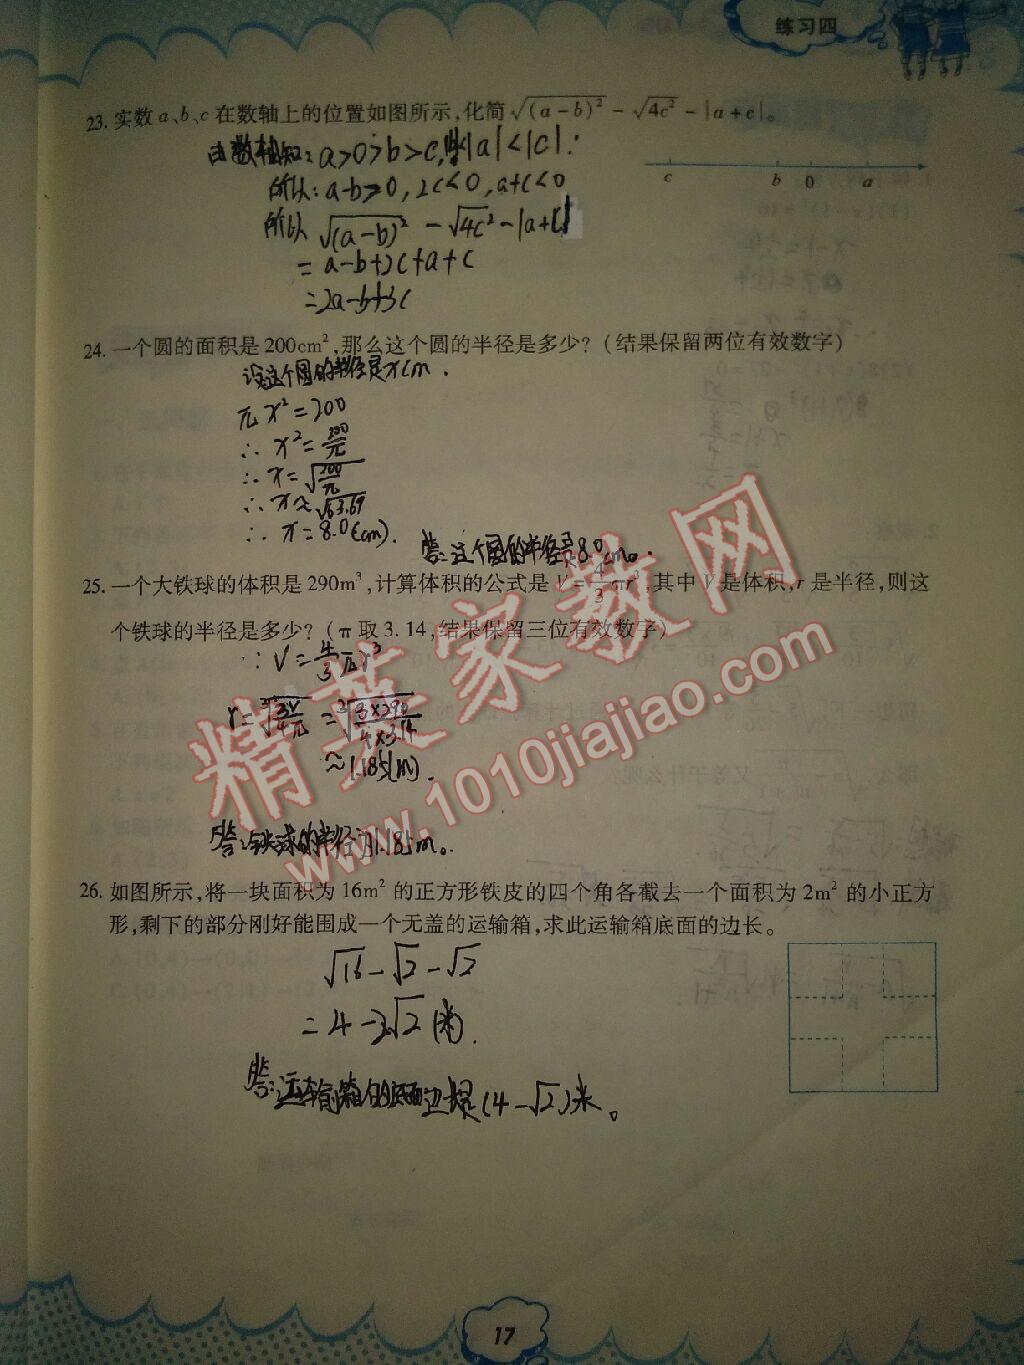 练习四
23. 实数 a、b、c 在数轴上的位置如图所示,化简 √(a-b)² - √4c² - |a+c|。
由数轴知: a>0>b>c, 且|a|<|c|.
c b 0 a
所以: a-b>0, 2c<0, a+c<0
所以 √(a-b)² - √4c² - |a+c|
= a-b+2c+a+c
=2a-b+3c
24. 一个圆的面积是 200cm²,那么这个圆的半径是多少? (结果保留两位有效数字)
设这个圆的半径是xcm.
πx²=200
∴ x²=200/π
∴ x=√200/π
∴ x≈√63.69
∴ x=8.0(cm).
答:这个圆的半径是8.0cm。
25. 一个大铁球的体积是 290m³,计算体积的公式是 V=4/3πr³,其中 V 是体积,r 是半径,则这
个铁球的半径是多少? (π 取 3.14,结果保留三位有效数字)
∵ V=4/3πr³
r=³√3V/4π = ³√3×290/4×3.14
≈1.185(m).
答:铁球的半径为1.185m。
精英家教网
www.1010jiajiao.com
26. 如图所示,将一块面积为 16m² 的正方形铁皮的四个角各截去一个面积为 2m² 的小正方
形,剩下的部分刚好能围成一个无盖的运输箱,求此运输箱底面的边长。
√16-√2-√2
= 4-2√2(米).
答:运输箱的底面边长是(4-√2)米。
17